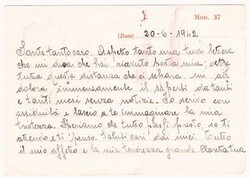 Mod. 37
(Data) 20-6-1942
Sante tanto caro. Aspetto tanto una tua lettera
che mi dica che hai ricevuto posta mia. Che
tutta questa distanza che ci separa mi ad
dolora immensamente il saperti da tanti
e tanti mesi senza notizie. Io scrivo con
assiduità e lascio a te immaginare la mia
tristezza. Speriamo che tutto passi presto, io ti
attendo e ti penso. Saluti cari dai miei. Tutto
il mio affetto e la mia tenerezza grande